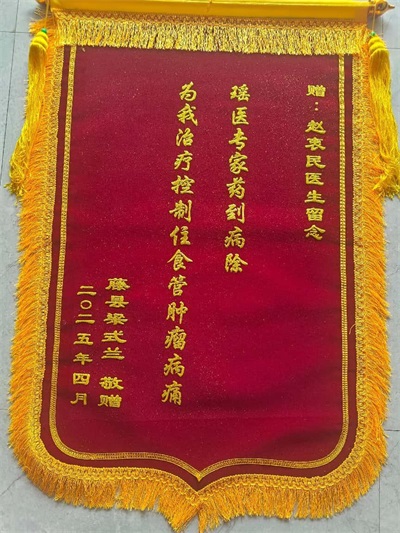 赠：赵衷民医生留念
瑶医专家药到病除
为我治疗控制住食管肿瘤病痛
藤县梁式兰 敬赠
二〇二五年四月